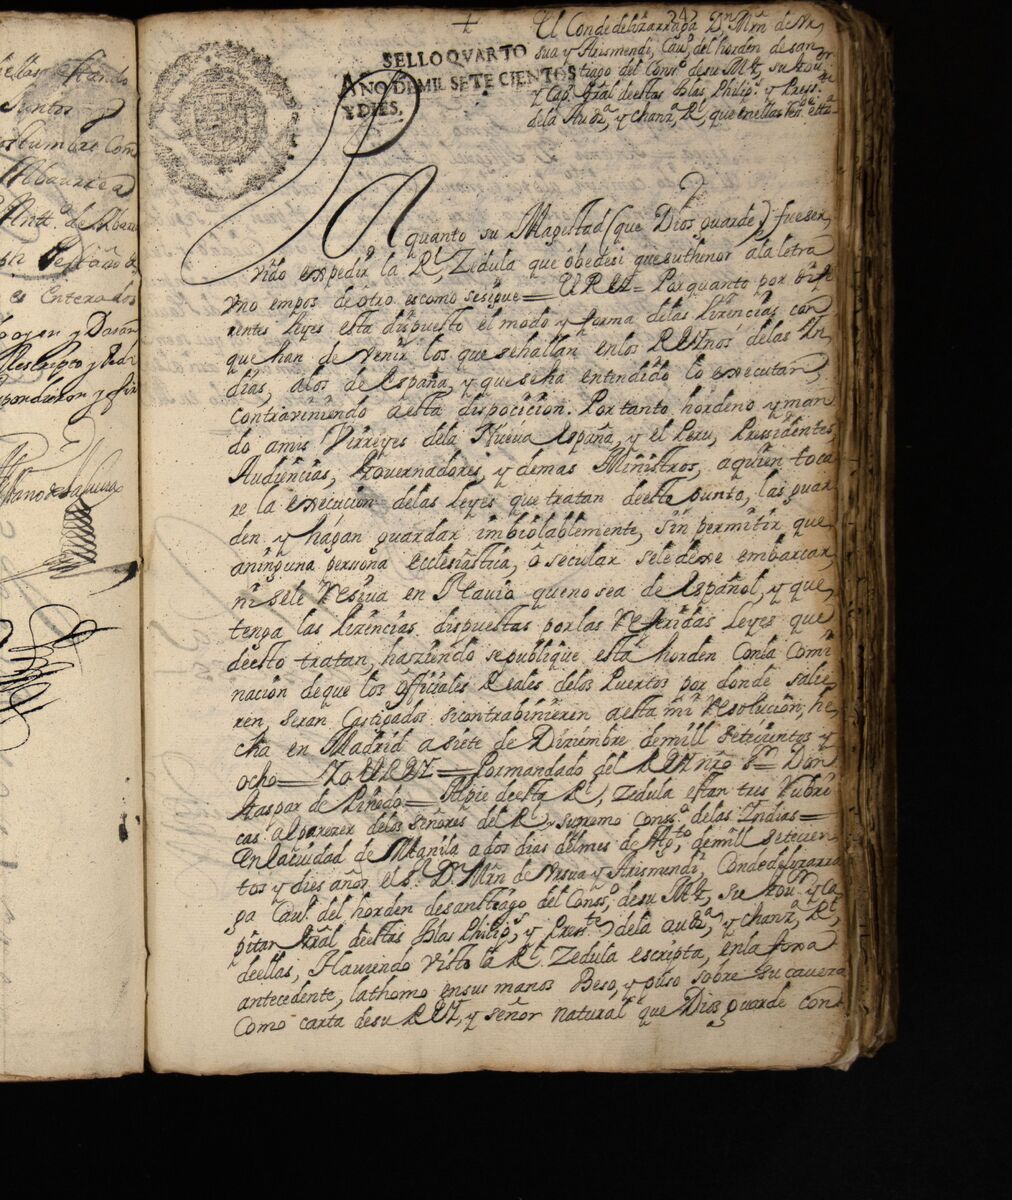 ellas estando
Juntos y
ostumbre Com
de Abaurrea
es Enterados
+
242
SELLO QVARTO
AÑO DE MIL SETECIENTOS
Y DIES.
El Conde de lizarraga Dn Mrn de Vr
sua y Arismendi, Cauo del horden de san
tiago del Conso de su Mg, su Gour
y Capn Gral de estas Islas Philips y Presste
de la Auda y chanza Rl que en ellas reside etta
Por
quanto su Magestad (que Dios guarde) fue ser
vido expedir la Rl Zedula que obedesi que su thenor a la letra
vno empos de otro es como se sigue = EL REY = Por quanto por dife
rentes Leyes esta dispuesto el modo y forma de las lizencias con
que han de venir los que se hallan en los REYnos de las In
dias, a los de españa, y que se ha entendido lo executan,
contraviniendo a esta dispocicion. Por tanto hordeno y man
do a mis Virreyes de la Nueva España, y el Peru, Pressidentes,
Audiencias, Governadores, y demas Ministros, a quien toca
re la execucion de las Leyes que tratan de este punto, las guar
den y hagan guardar imbiolablemente, sin permitir que
a ninguna persona ecclesiastica, o secular se le dexe embarcar,
ni se le resiva en Navio que no sea de Español, y que
tenga las lizencias dispuestas por las referidas Leyes que
de esto tratan, haziendo se publique esta horden con la comi
nacion de que los officiales Reales de los Puertos por donde salie
ren, seran Castigados si contrabinieren a esta mi resolucion, he
cha en Madrid a siete de Diziembre de mill setecientos y
ocho = Yo EL REY = Por mandado del REY nro sr = Don
Gaspar de Pinedo = Al pie de esta Rl Zedula estan tres rubri
cas al parezer de los señores del Rl y supremo Conso de las Indias =
En la ciudad de Manila a dos dias del mes de Agto de mill setecien
tos y dies años el sr Dn Mrn de Vrsua y Arismendi, Conde de lizarra
ga Cauo del horden de santiago del Conso de su Mg, su Gour y Ca
pitan Gral de estas Islas Philips y Presste de la auda y chanza Rl
de ellas, Haviendo visto la Rl Zedula escripta, en la foxa
antecedente, la thomo en sus manos Beso, y puso sobre su cavesa
como carta de su REY, y señor natural que Dios guarde con